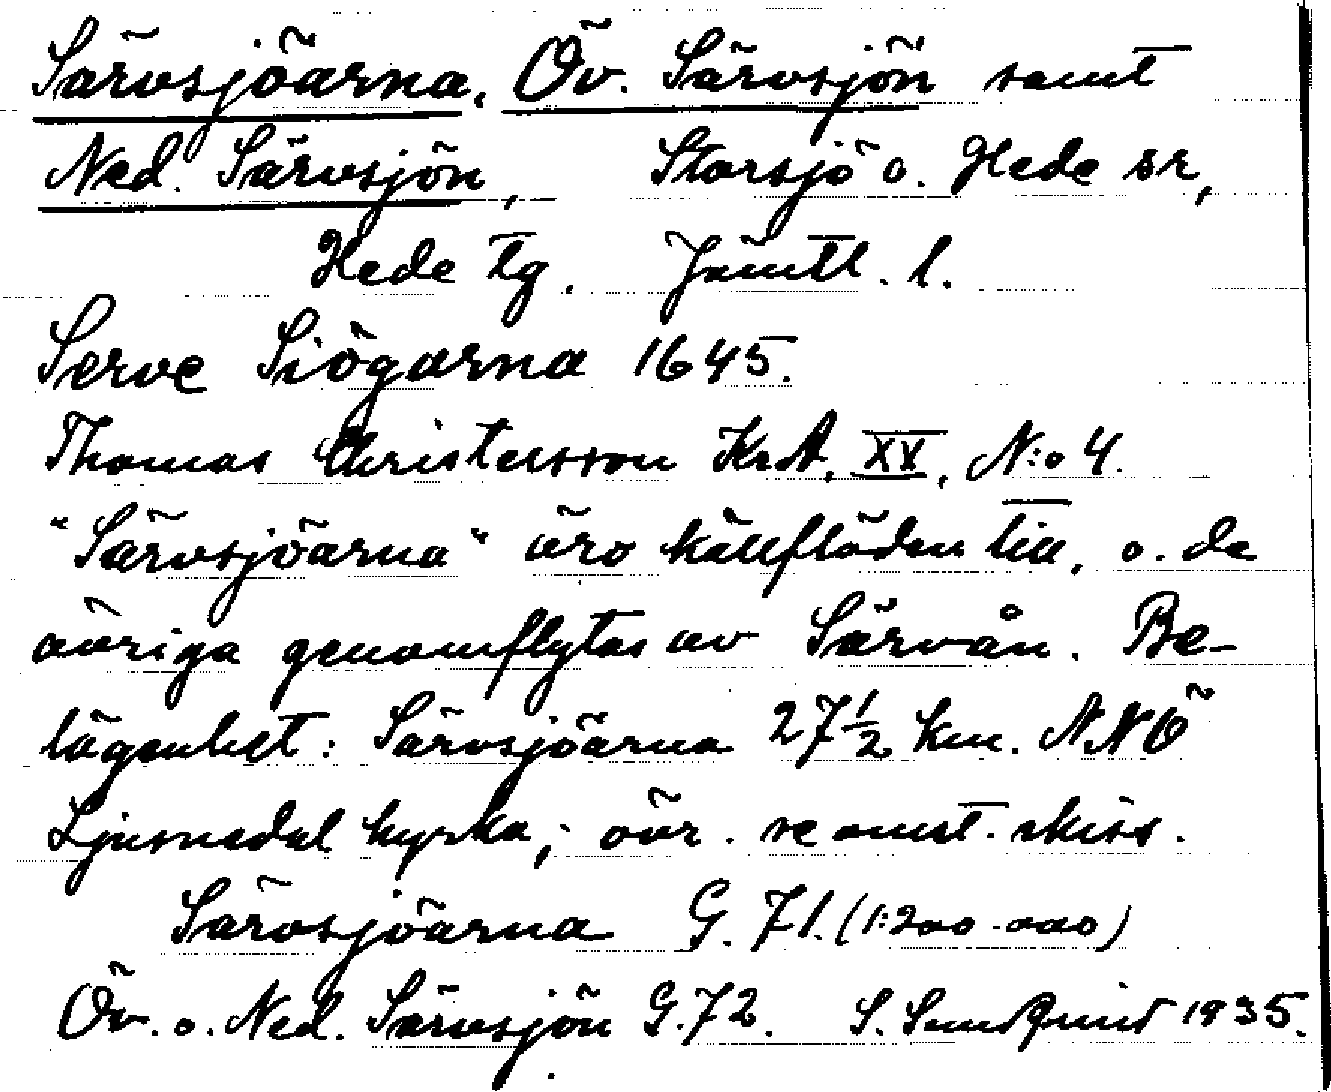 Särvsjöarna, Öv. Särvsjön samt
Ned. Särvsjön, Storsjö o. Hede sr,
Hede tg. Jämtl. l.
Serve Siögarna 1645.
Thomas Christersson KrA. XV, N:o 4.
"Särvsjöarna" äro källflöden till, o. de
övriga genomflytas av Särvån. Be-
lägenhet: Särvsjöarna 27 1/2 km. NNÖ
Ljusnedal kyrka; övr. se omst. skiss.
Särvsjöarna G. 71. (1:200.000)
Öv. o. Ned. Särvsjön G. 72. S. Sundquist 1935.